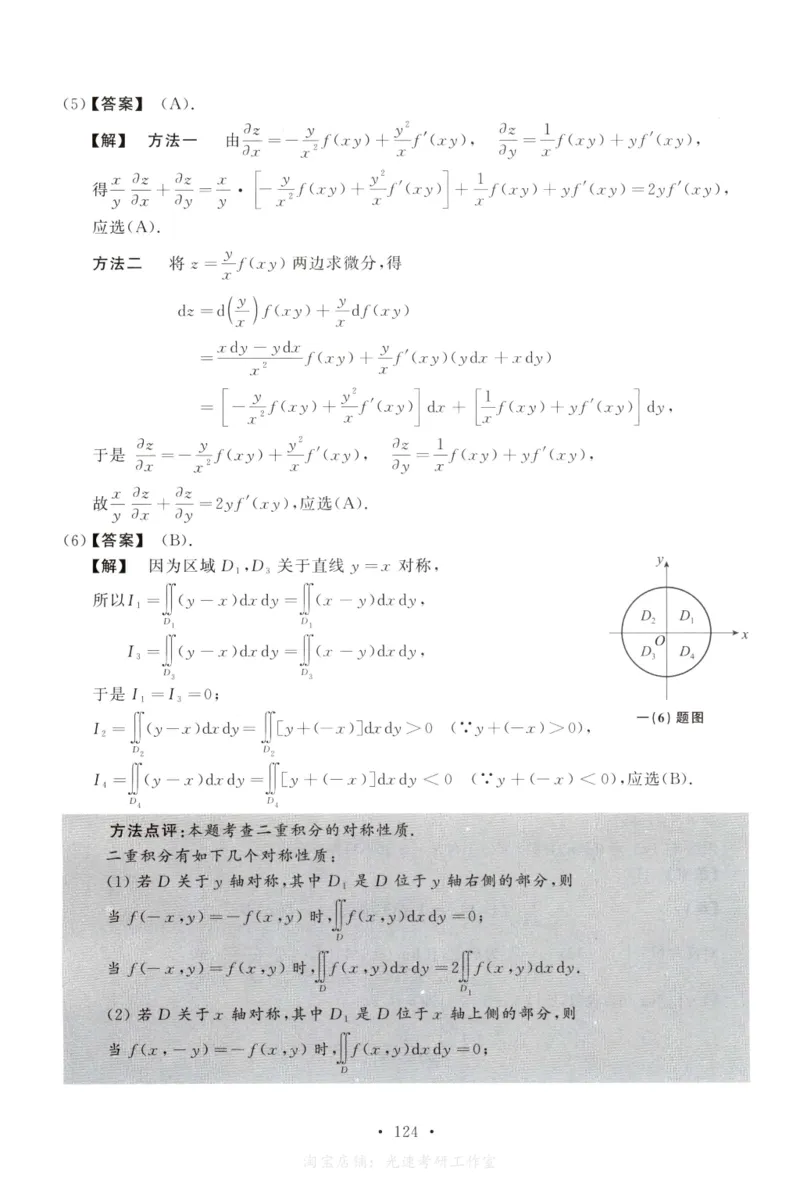 (5)【答案】 (A).
【解】 方法一 由∂z/∂x=-y/x²f(xy)+y²/xf′(xy), ∂z/∂y=1/xf(xy)+yf′(xy),
得x/y ∂z/∂x+∂z/∂y=x/y·[-y/x²f(xy)+y²/xf′(xy)]+1/xf(xy)+yf′(xy)=2yf′(xy),
应选(A).
方法二 将 z=y/xf(xy) 两边求微分,得
dz=d(y/x)f(xy)+y/xdf(xy)
=(xdy-ydx)/x²f(xy)+y/xf′(xy)(ydx+xdy)
=[-y/x²f(xy)+y²/xf′(xy)]dx+[1/xf(xy)+yf′(xy)]dy,
于是 ∂z/∂x=-y/x²f(xy)+y²/xf′(xy), ∂z/∂y=1/xf(xy)+yf′(xy),
故x/y ∂z/∂x+∂z/∂y=2yf′(xy),应选(A).
(6)【答案】 (B).
【解】 因为区域 D₁,D₃ 关于直线 y=x 对称,
所以I₁=∬_{D₁}(y-x)dxdy=∬_{D₁}(x-y)dxdy,
I₃=∬_{D₃}(y-x)dxdy=∬_{D₃}(x-y)dxdy,
于是 I₁=I₃=0;
I₂=∬_{D₂}(y-x)dxdy=∬_{D₂}[y+(-x)]dxdy>0 (∵y+(-x)>0),
I₄=∬_{D₄}(y-x)dxdy=∬_{D₄}[y+(-x)]dxdy<0 (∵y+(-x)<0),应选(B).
y
D₂ D₁
O x
D₃ D₄
一(6)题图
方法点评:本题考查二重积分的对称性质.
二重积分有如下几个对称性质:
(1) 若 D 关于 y 轴对称,其中 D₁ 是 D 位于 y 轴右侧的部分,则
当 f(-x,y)=-f(x,y) 时,∬_{D}f(x,y)dxdy=0;
当 f(-x,y)=f(x,y) 时,∬_{D}f(x,y)dxdy=2∬_{D₁}f(x,y)dxdy.
(2) 若 D 关于 x 轴对称,其中 D₁ 是 D 位于 x 轴上侧的部分,则
当 f(x,-y)=-f(x,y) 时,∬_{D}f(x,y)dxdy=0;
· 124 ·
淘宝店铺：光速考研工作室